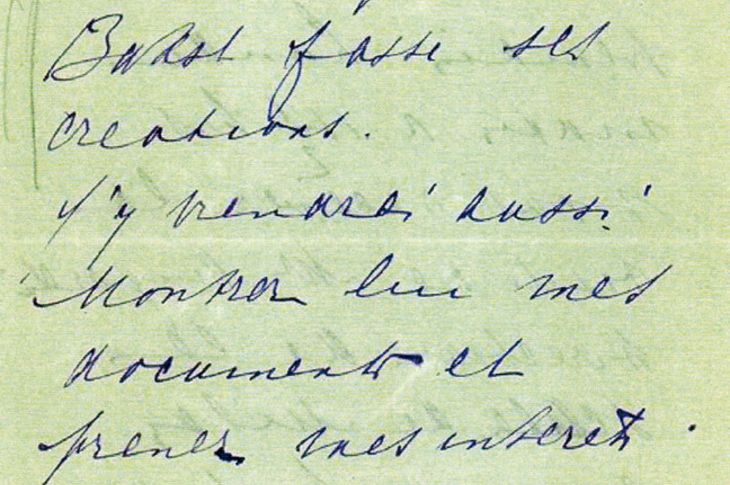 Bakst fasse ses
creations.
J'y viendrai aussi
Montrer lui mes
documents et
prener mes interets.